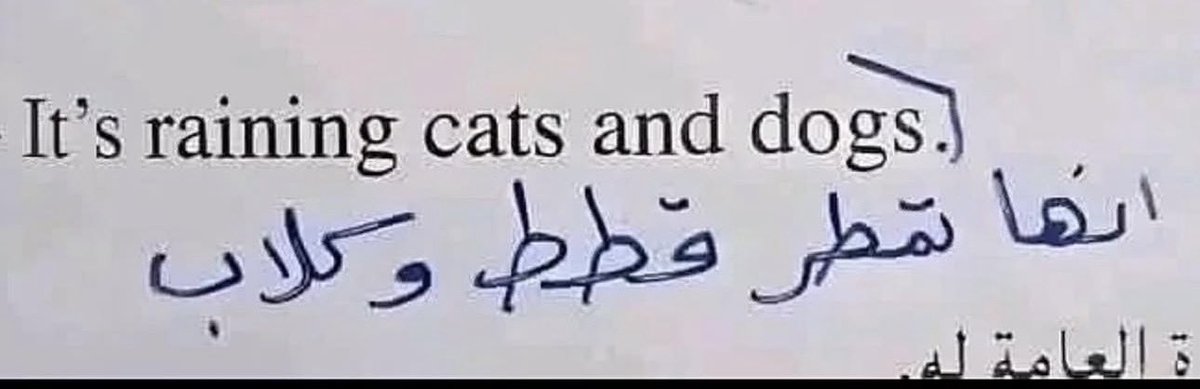 It's raining cats and dogs.
انها تمطر قطط وكلاب
ة العامة له.